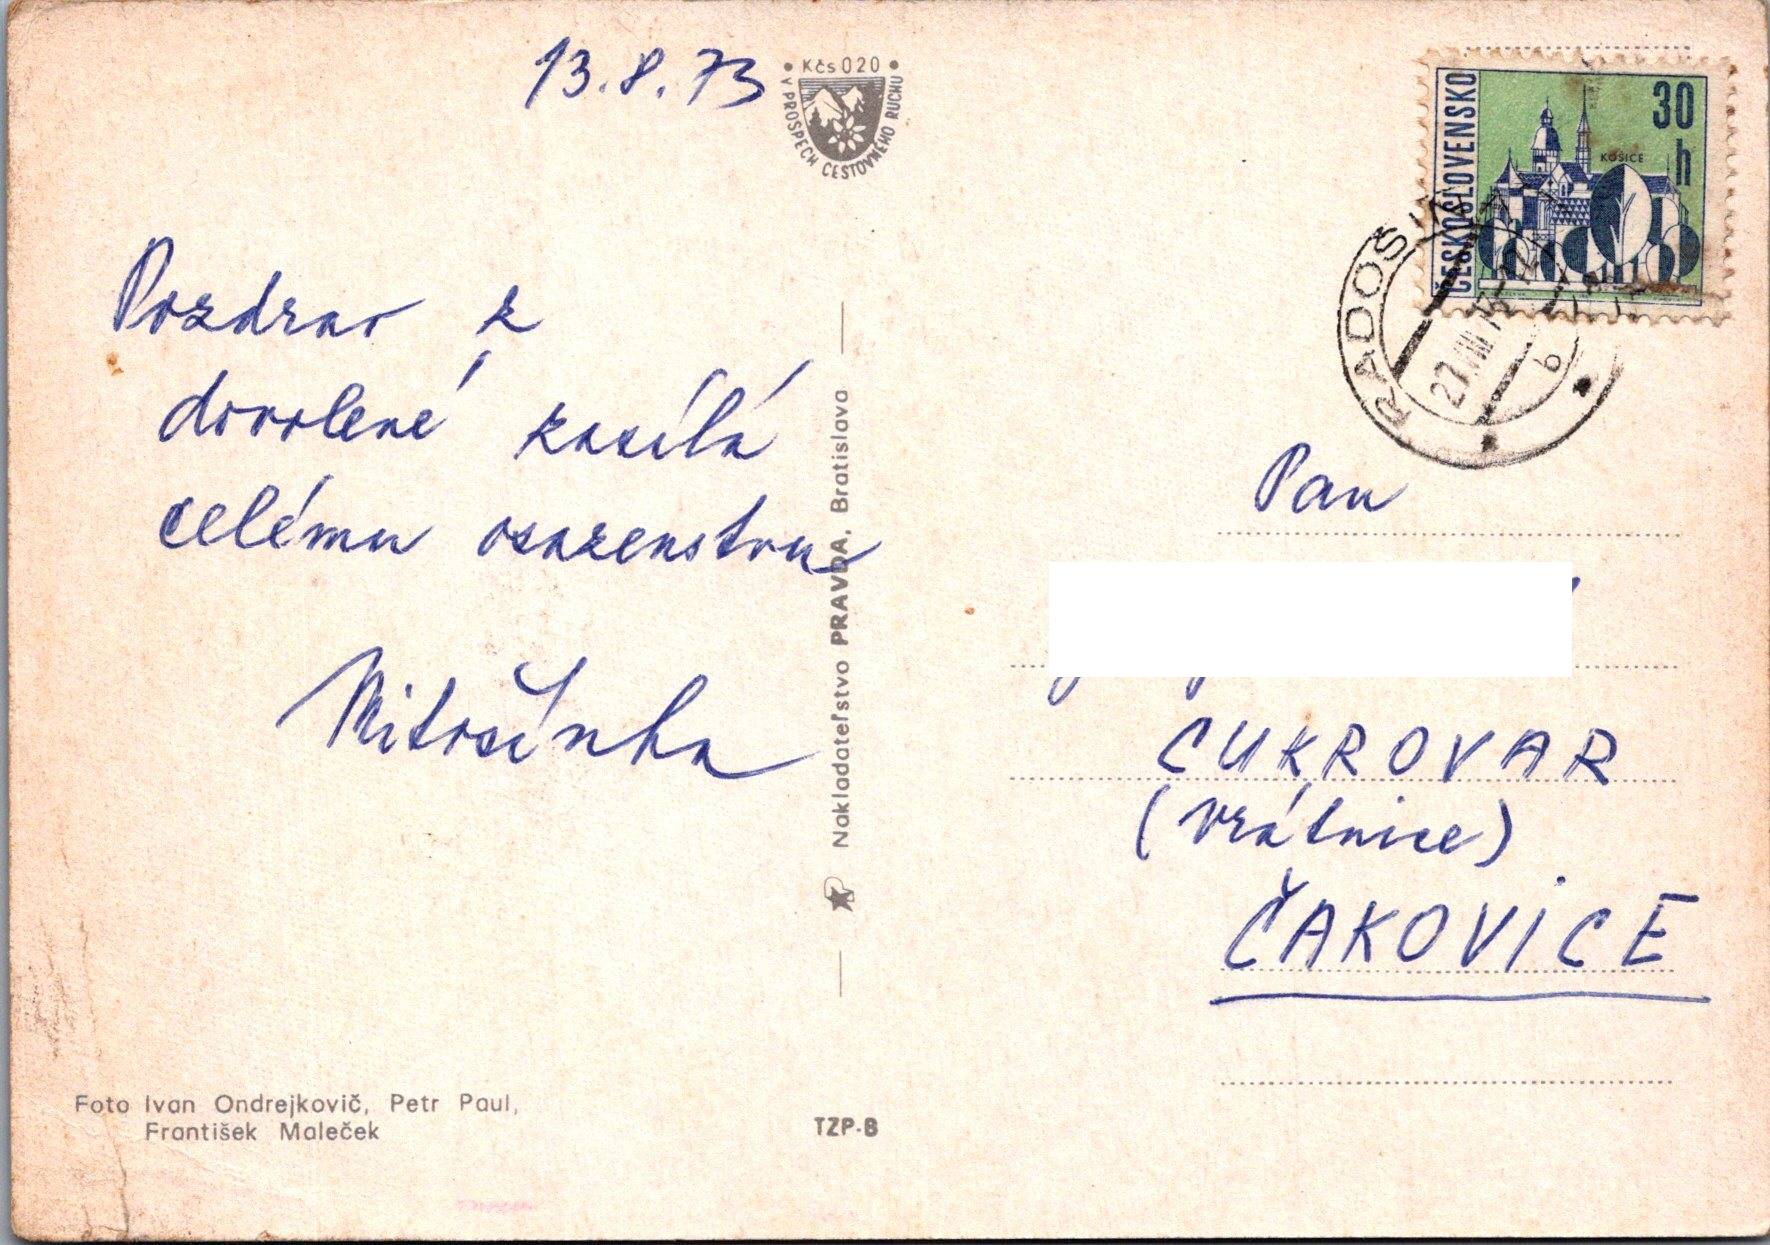 13.8.73
• Kčs 020 •
V PROSPECH CESTOVNÉHO RUCHU
Pozdrav z
dovolené zasílá
celému osazenstvu
Mitošinka
Foto Ivan Ondrejkovič, Petr Paul,
František Maleček
Nakladateľstvo PRAVDA, Bratislava
TZP-B
ČESKOSLOVENSKO
30
h
KOŠICE
RADOŠINA
27.VIII.73-12
b
Pan
CUKROVAR
(vrátnice)
ČAKOVICE